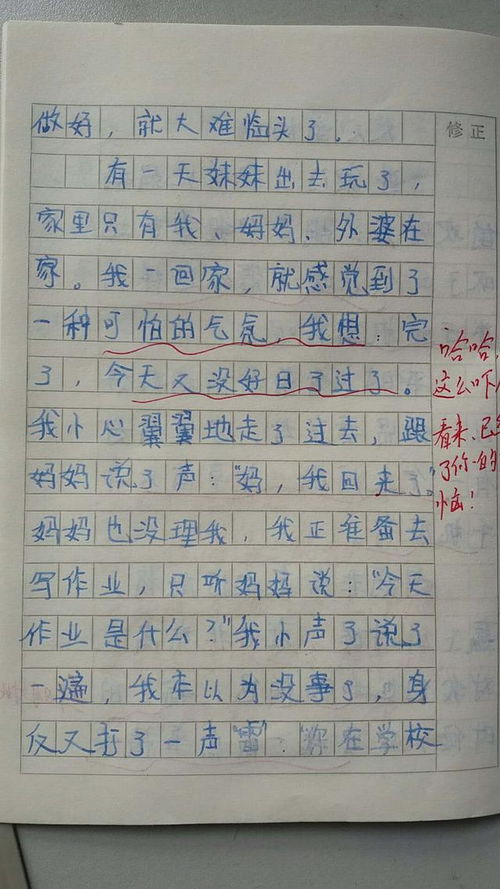 修正
做好，就大难临头了。
有一天妹妹出去玩了，
家里只有我、妈妈、外婆在
家。我一回家，就感觉到了
一种可怕的气氛，我想：完
了，今天又没好日子过了。
我小心翼翼地走了过去，跟
妈妈说了声：“妈，我回来了。”
妈妈也没理我，我正准备去
写作业，只听妈妈说：“今天
作业是什么？”我小声了说了
一遍，我本以为没事了，身
后又打了一声“雷”：“你在学校
哈哈，
这么吓人
看来，已
了你的